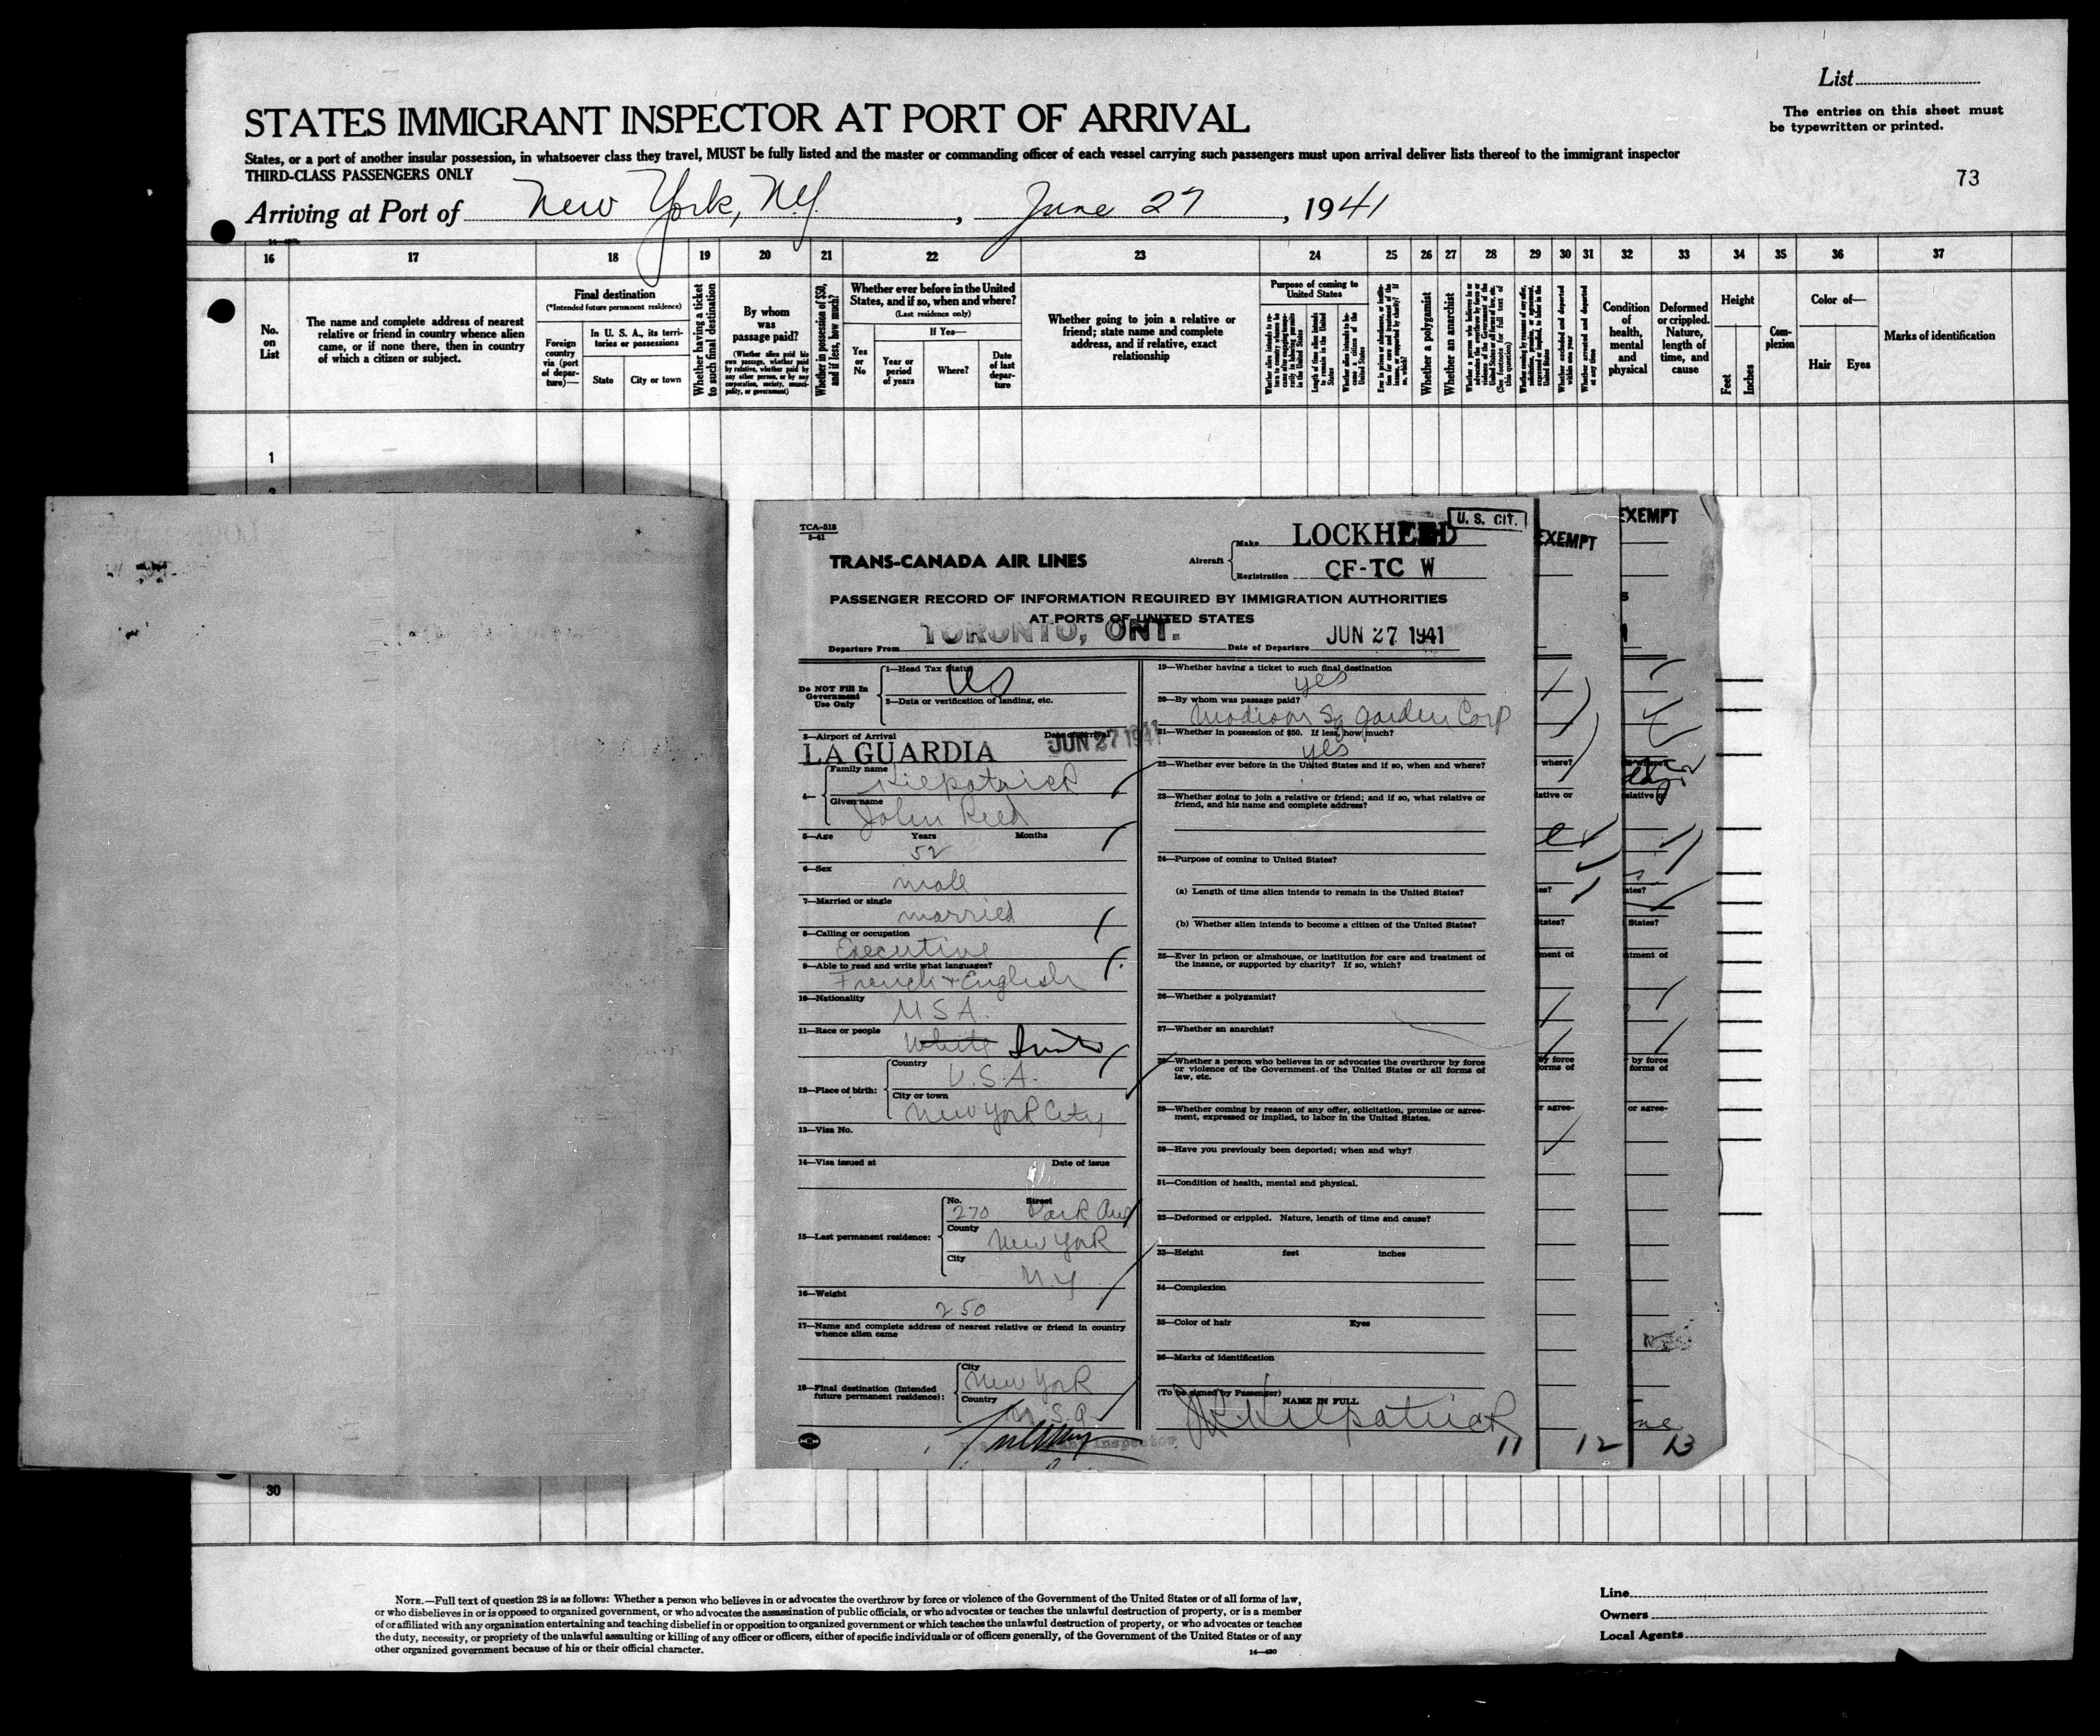 List
STATES IMMIGRANT INSPECTOR AT PORT OF ARRIVAL
The entries on this sheet must
be typewritten or printed.
States, or a port of another insular possession, in whatsoever class they travel, MUST be fully listed and the master or commanding officer of each vessel carrying such passengers must upon arrival deliver lists thereof to the immigrant inspector
THIRD-CLASS PASSENGERS ONLY
73
Arriving at Port of New York, N.Y. , June 27 , 1941
16 17 18 19 20 21 22 23 24 25 26 27 28 29 30 31 32 33 34 35 36 37
No.
on
List
The name and complete address of nearest
relative or friend in country whence alien
came, or if none there, then in country
of which a citizen or subject.
Final destination
(*Intended future permanent residence)
Foreign
country
via (port
of depar-
ture)—
In U. S. A., its terri-
tories or possessions
State City or town
Whether having a ticket
to such final destination
By whom
was
passage paid?
(Whether alien paid his
own passage, whether paid
by relative, whether paid by
any other person, or by any
corporation, society, munici-
pality, or government)
Whether in possession of $50,
and if less, how much?
Whether ever before in the United
States, and if so, when and where?
(Last residence only)
If Yes—
Yes
or
No
Year or
period
of years
Where?
Date
of last
depar-
ture
Whether going to join a relative or
friend; state name and complete
address, and if relative, exact
relationship
Purpose of coming to
United States
Whether a polygamist
Whether an anarchist
Condition
of
health,
mental
and
physical
Deformed
or crippled.
Nature,
length of
time, and
cause
Height
Feet
Inches
Com-
plexion
Color of—
Hair Eyes
Marks of identification
1
TCA-518
5-41
TRANS-CANADA AIR LINES
Aircraft
Make LOCKHEED
Registration CF-TC W
U. S. CIT.
PASSENGER RECORD OF INFORMATION REQUIRED BY IMMIGRATION AUTHORITIES
AT PORTS OF UNITED STATES
Departure From TORONTO, ONT.
Date of Departure JUN 27 1941
Do NOT Fill In
Government
Use Only
1—Head Tax Status
US
2—Data or verification of landing, etc.
3—Airport of Arrival Date of Arrival
LA GUARDIA JUN 27 1941
4—
Family name
Kilpatrick
Given name
John Reed
5—Age Years Months
52
6—Sex
male
7—Married or single
married
8—Calling or occupation
Executive
9—Able to read and write what languages?
French + English
10—Nationality
U S A.
11—Race or people
White
12—Place of birth:
Country
U.S.A.
City or town
New York City
13—Visa No.
14—Visa issued at Date of issue
15—Last permanent residence:
No. Street
270 Park Ave
County
New York
City
N.Y
16—Weight
250
17—Name and complete address of nearest relative or friend in country
whence alien came
18—Final destination (Intended
future permanent residence):
City
New York
Country
U.S.A.
Inspector
19—Whether having a ticket to such final destination
yes
20—By whom was passage paid?
Madison Sq Garden Corp
21—Whether in possession of $50. If less, how much?
yes
22—Whether ever before in the United States and if so, when and where?
23—Whether going to join a relative or friend; and if so, what relative or
friend, and his name and complete address?
24—Purpose of coming to United States?
(a) Length of time alien intends to remain in the United States?
(b) Whether alien intends to become a citizen of the United States?
25—Ever in prison or almshouse, or institution for care and treatment of
the insane, or supported by charity? If so, which?
26—Whether a polygamist?
27—Whether an anarchist?
28—Whether a person who believes in or advocates the overthrow by force
or violence of the Government of the United States or all forms of
law, etc.
29—Whether coming by reason of any offer, solicitation, promise or agree-
ment, expressed or implied, to labor in the United States.
30—Have you previously been deported; when and why?
31—Condition of health, mental and physical.
32—Deformed or crippled. Nature, length of time and cause?
33—Height feet inches
34—Complexion
35—Color of hair Eyes
36—Marks of identification
(To be signed by Passenger)
NAME IN FULL
J R Kilpatrick
11
EXEMPT
where?
lative or
es?
States?
ment of
by force
forms of
r agree-
12
EXEMPT
elative or
ates?
States?
tment of
by force
forms of
or agree-
13
30
NOTE.—Full text of question 28 is as follows: Whether a person who believes in or advocates the overthrow by force or violence of the Government of the United States or of all forms of law,
or who disbelieves in or is opposed to organized government, or who advocates the assassination of public officials, or who advocates or teaches the unlawful destruction of property, or is a member
of or affiliated with any organization entertaining and teaching disbelief in or opposition to organized government or which teaches the unlawful destruction of property, or who advocates or teaches
the duty, necessity, or propriety of the unlawful assaulting or killing of any officer or officers, either of specific individuals or of officers generally, of the Government of the United States or of any
other organized government because of his or their official character.
14—430
Line
Owners
Local Agents